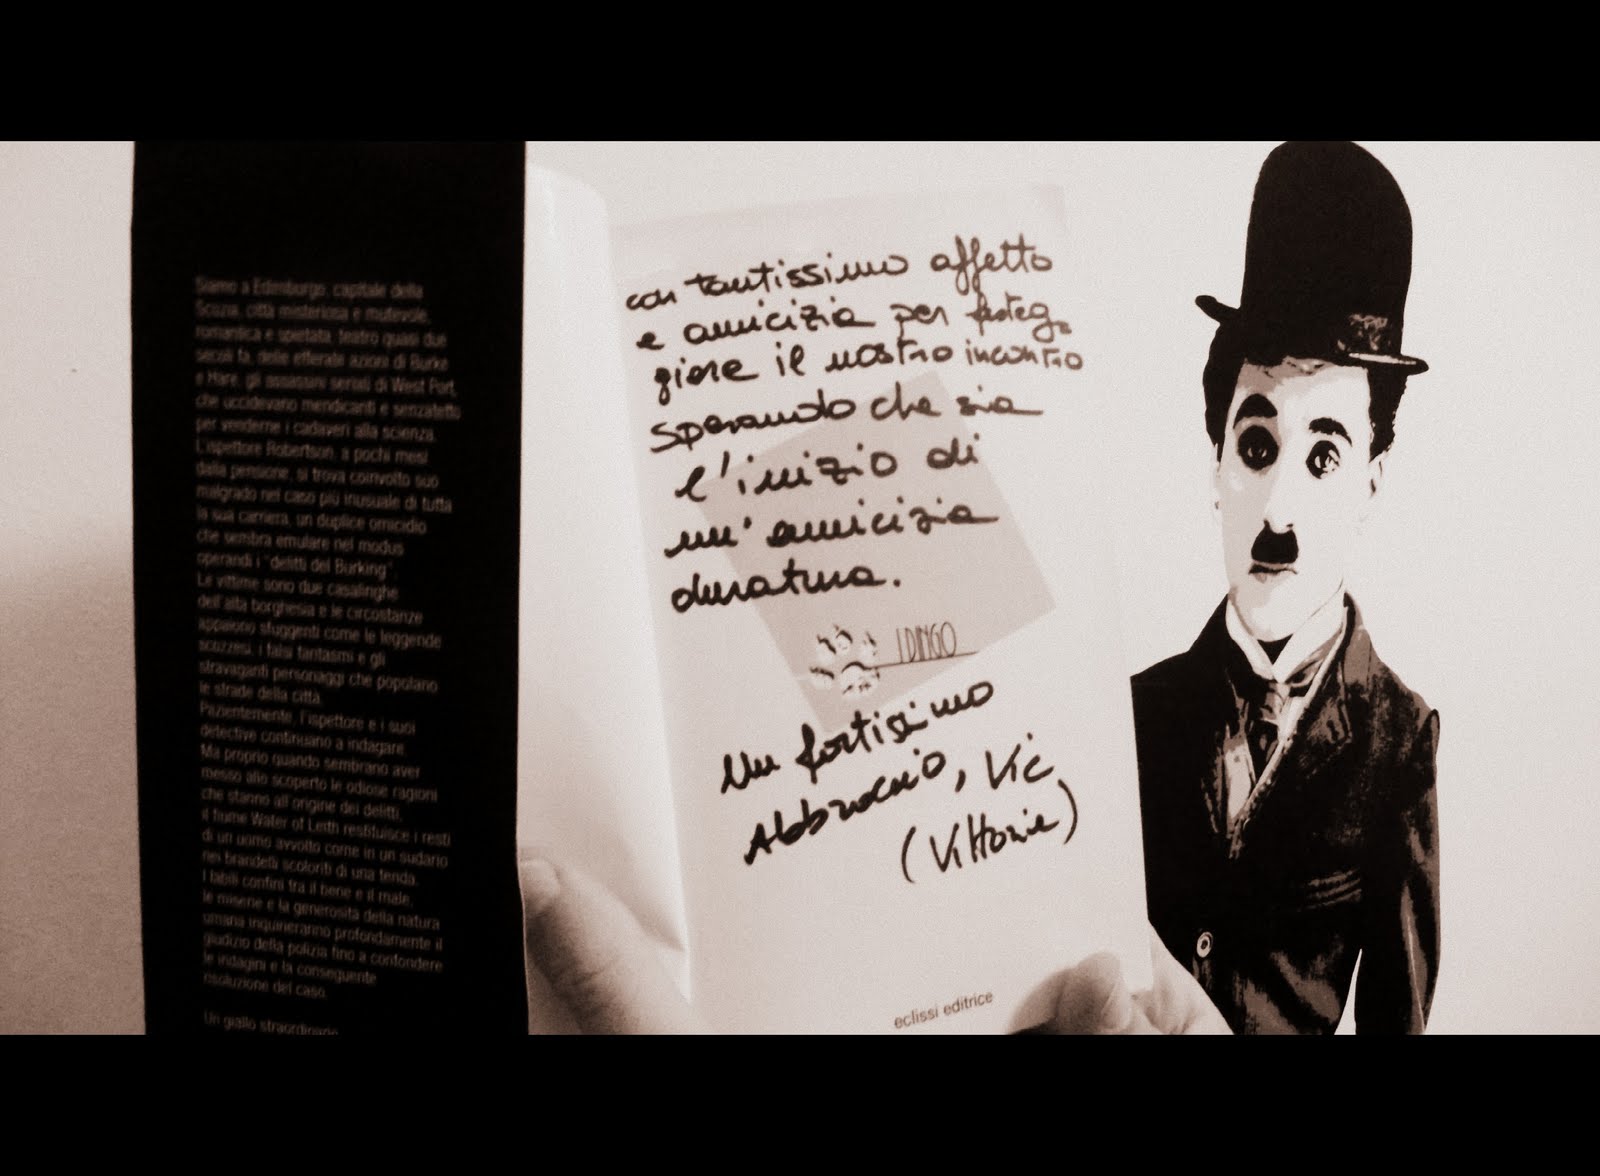 Siamo a Edimburgo, capitale della
Scozia, città misteriosa e mutevole,
romantica e spietata, teatro quasi due
secoli fa, delle efferate azioni di Burke
e Hare, gli assassini seriali di West Port,
che uccidevano mendicanti e senzatetto
per venderne i cadaveri alla scienza.
L'ispettore Robertson, a pochi mesi
dalla pensione, si trova coinvolto suo
malgrado nel caso più inusuale di tutta
la sua carriera, un duplice omicidio
che sembra emulare nel modus
operandi i "delitti del Burking".
Le vittime sono due casalinghe
dell'alta borghesia e le circostanze
appaiono sfuggenti come le leggende
scozzesi, i falsi fantasmi e gli
stravaganti personaggi che popolano
le strade della città.
Pazientemente, l'ispettore e i suoi
detective continuano a indagare.
Ma proprio quando sembrano aver
messo allo scoperto le odiose ragioni
che stanno all'origine dei delitti,
il fiume Water of Leith restituisce i resti
di un uomo avvolto come in un sudario
nei brandelli scoloriti di una tenda.
I labili confini tra il bene e il male,
le miserie e la generosità della natura
umana inquineranno profondamente il
giudizio della polizia fino a confondere
le indagini e la conseguente
risoluzione del caso.
Un giallo straordinario
con tantissimo affetto
e amicizia per festeg
giare il nostro incontro
sperando che sia
l'inizio di
un'amicizia
duratura.
I DINGO
Un fortissimo
Abbraccio, Vic
(Vittorie)
eclissi editrice